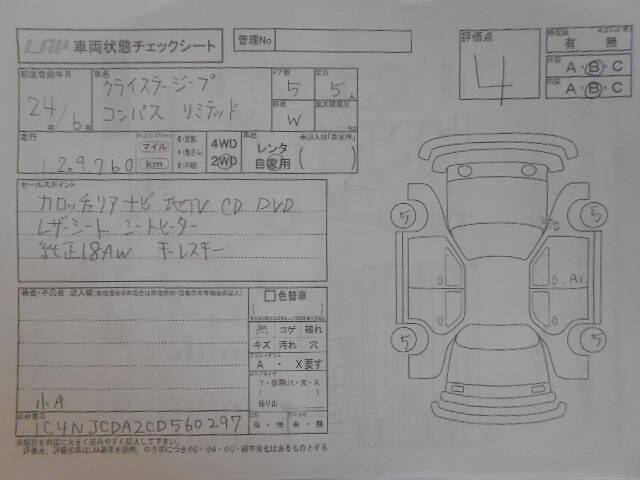 LAP 車両状態チェックシート
管理No
評価点
4
修復歴
有 ・ 無
外装
A ・ B ・ C
内装
A ・ B ・ C
初度登録年月
24年/6月
車名
クライスラージープ
コンパス リミテッド
ドア数
5
定員
5人
形状
W
最大積載量
走行
129760
マイル
km
4WD
2WD
車歴
レンタ
自家用
( )
セールスポイント
カロッツェリアナビ 地TV CD DVD
レザーシート シートヒーター
純正18AW キーレスキー
検査・不具合 記入欄
小A
色替車
コゲ 破れ
キズ 汚れ 穴
A ・ X要す
残り山
有・無 有・無
車台番号
1C4NJCDA2CD560297
5
5
5
5
A1